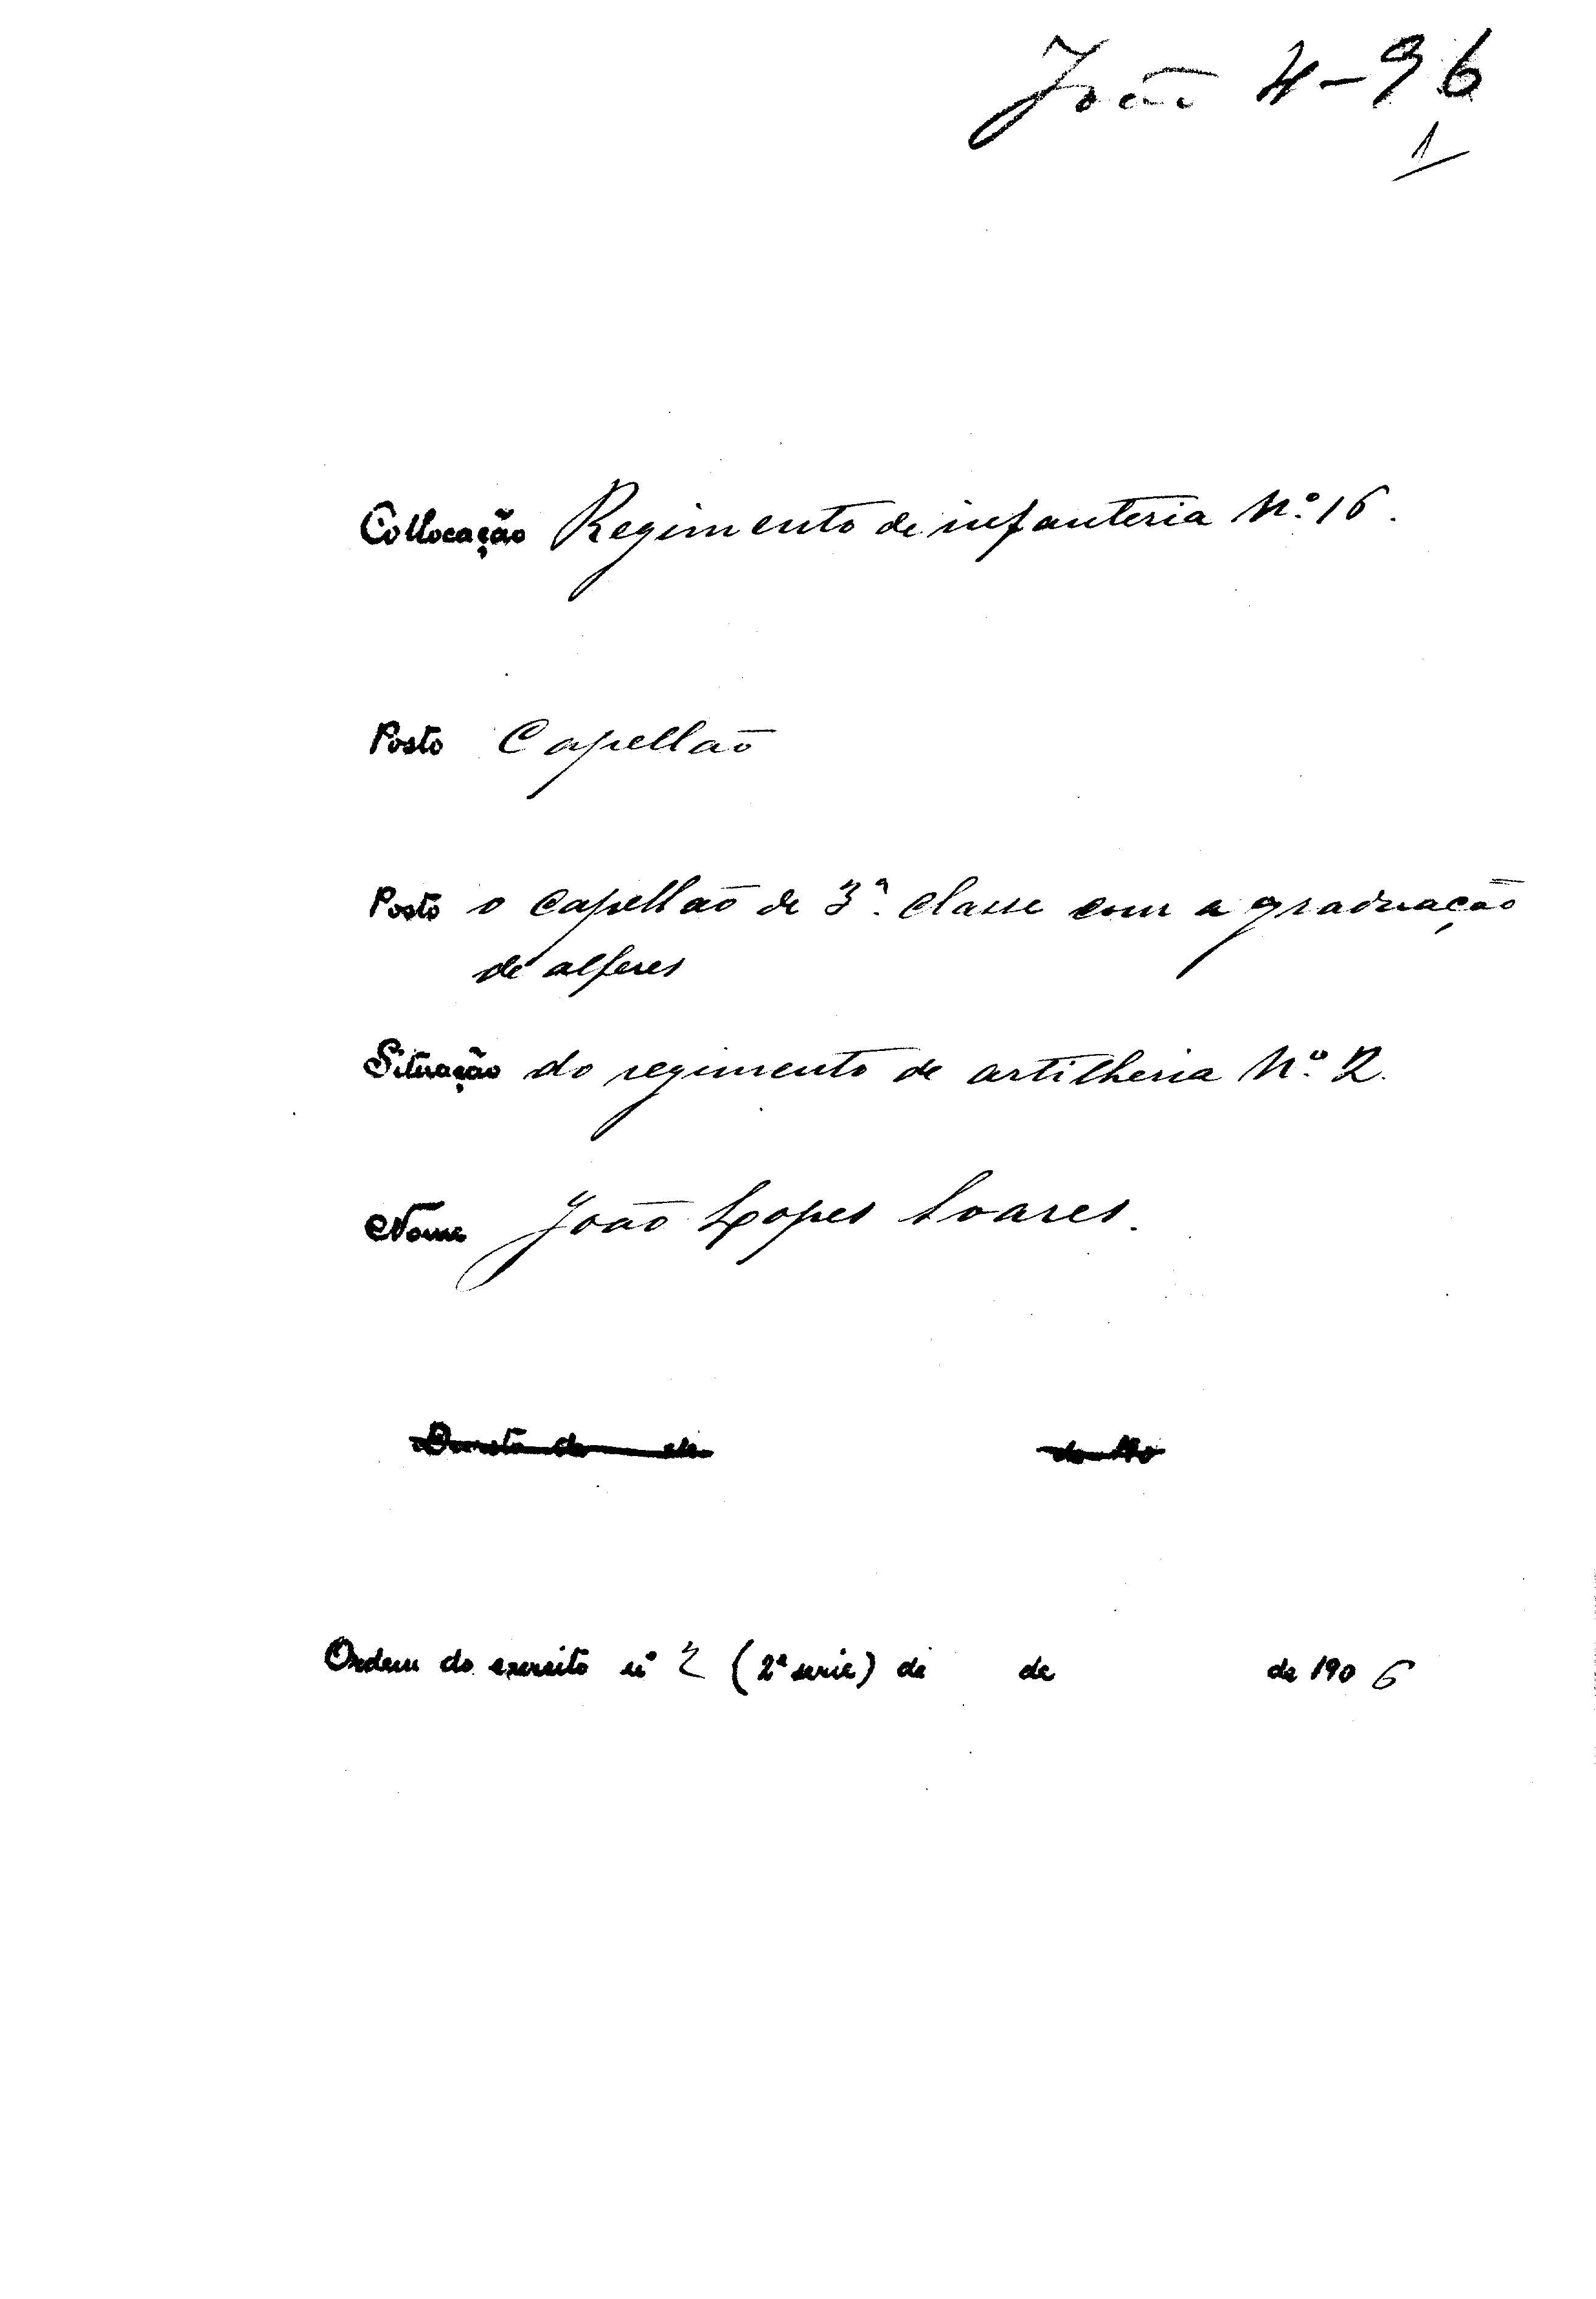 João 4-96
1
Collocação Regimento de infanteria Nº 16.
Posto Capellão
Posto o capellão de 3ª classe com a graduação
de alferes
Situação do regimento de artilheria Nº 2.
Nome João Lopes Soares.
Decreto de de de 190
Ordem do exercito nº 2 (2ª serie) de de de 1906